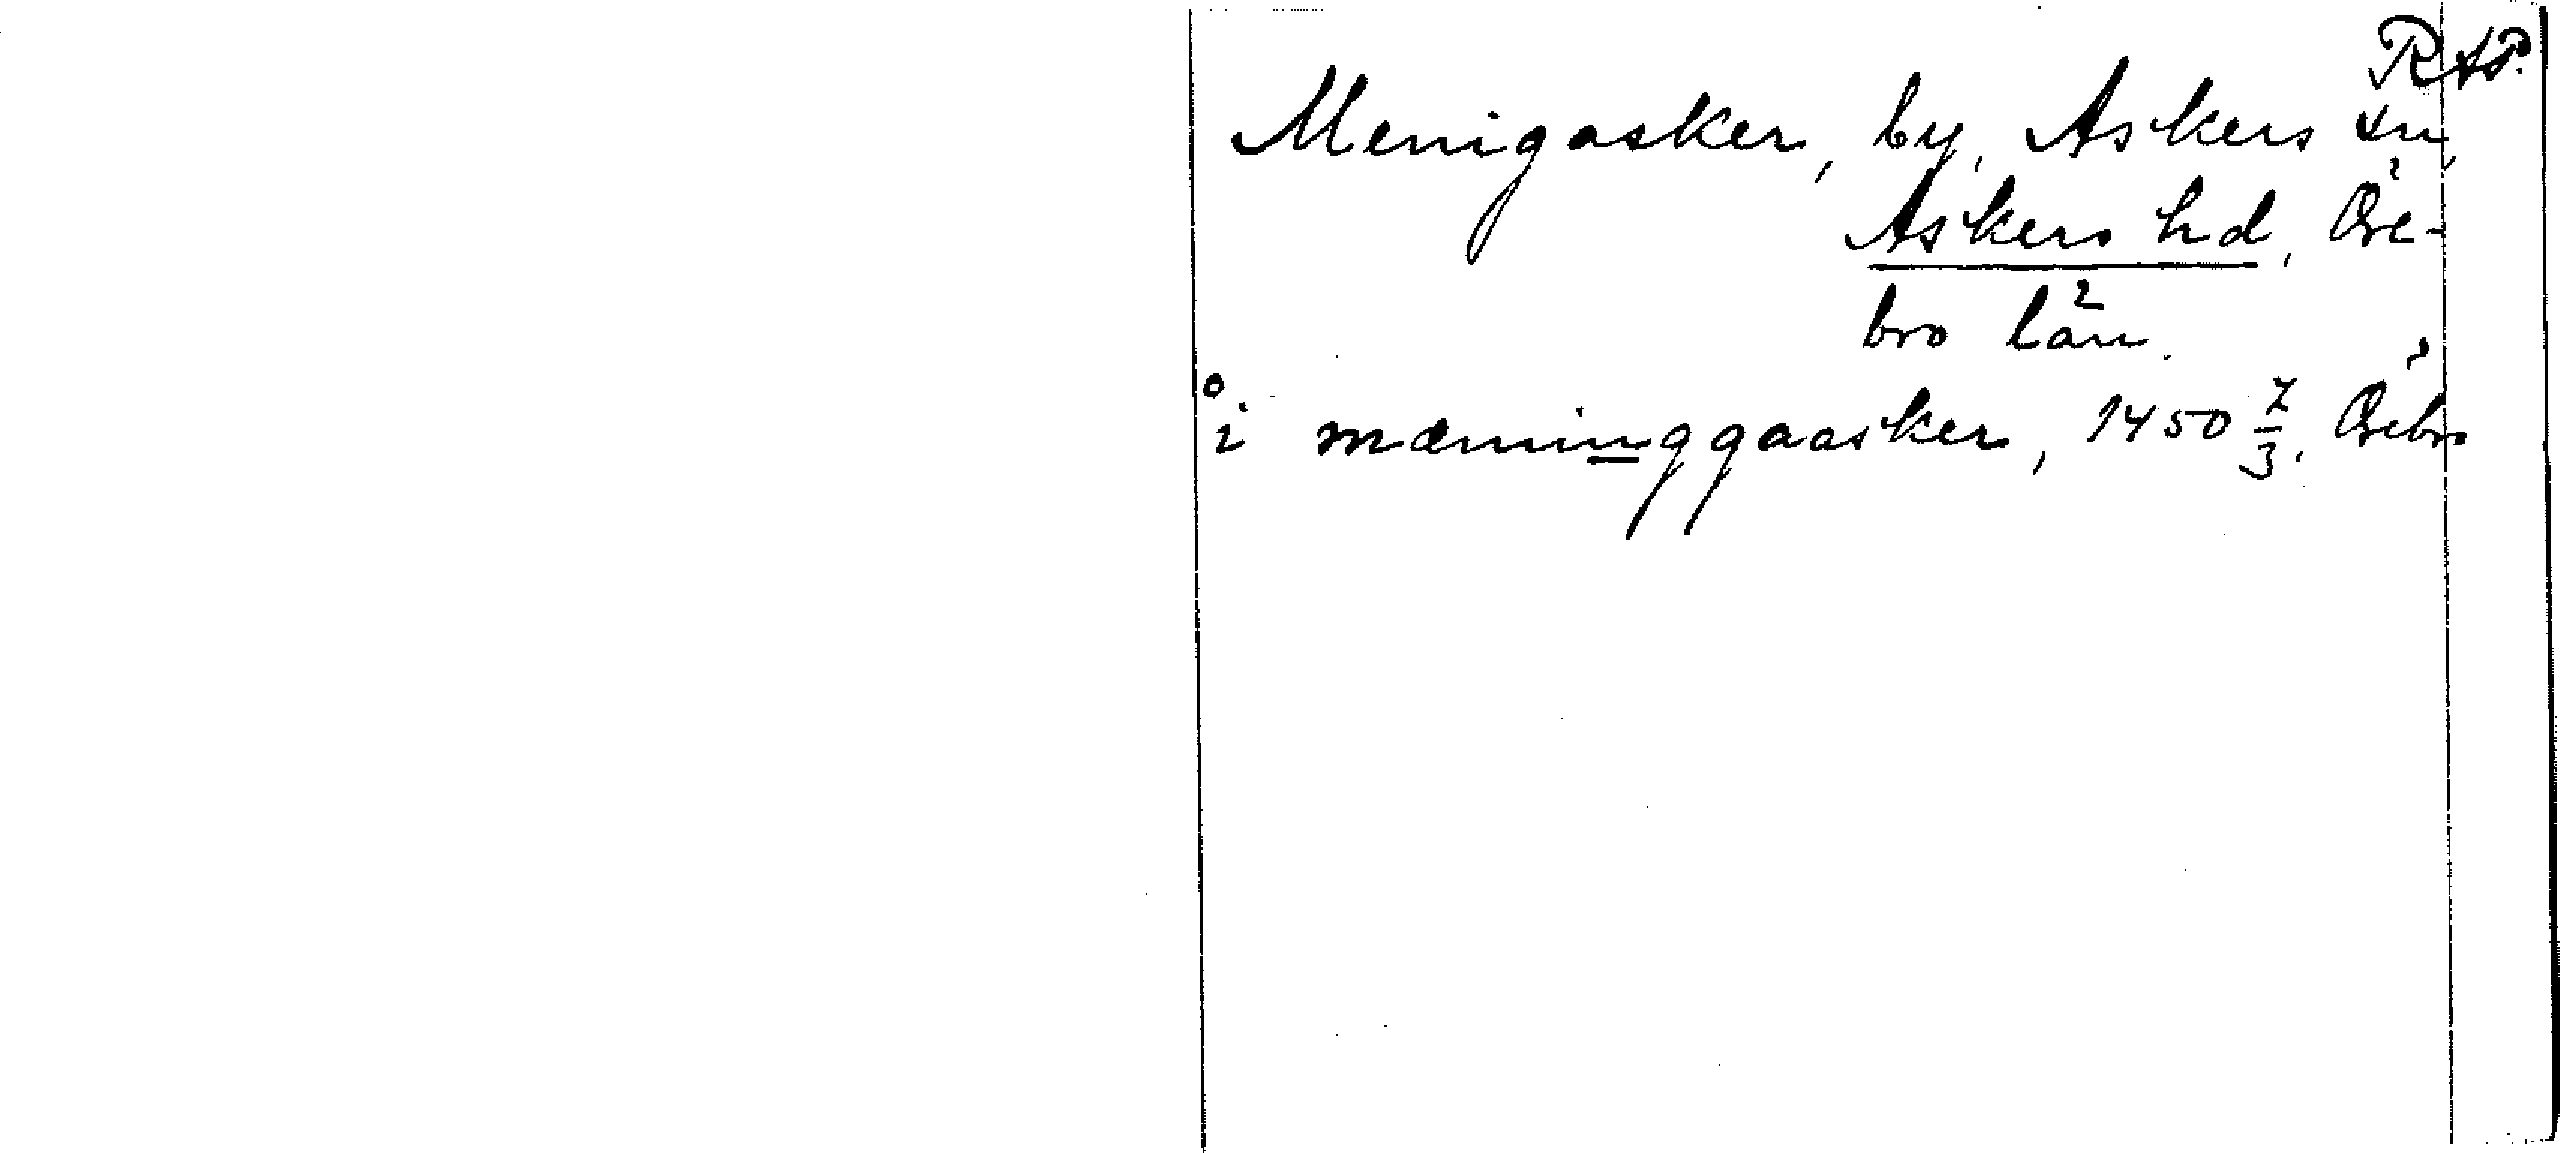 RAP.
Menigasker, by, Askers sn,
Askers hd, Öre-
bro län.
° i mæninggaasker, 1450 7/3, Örebro